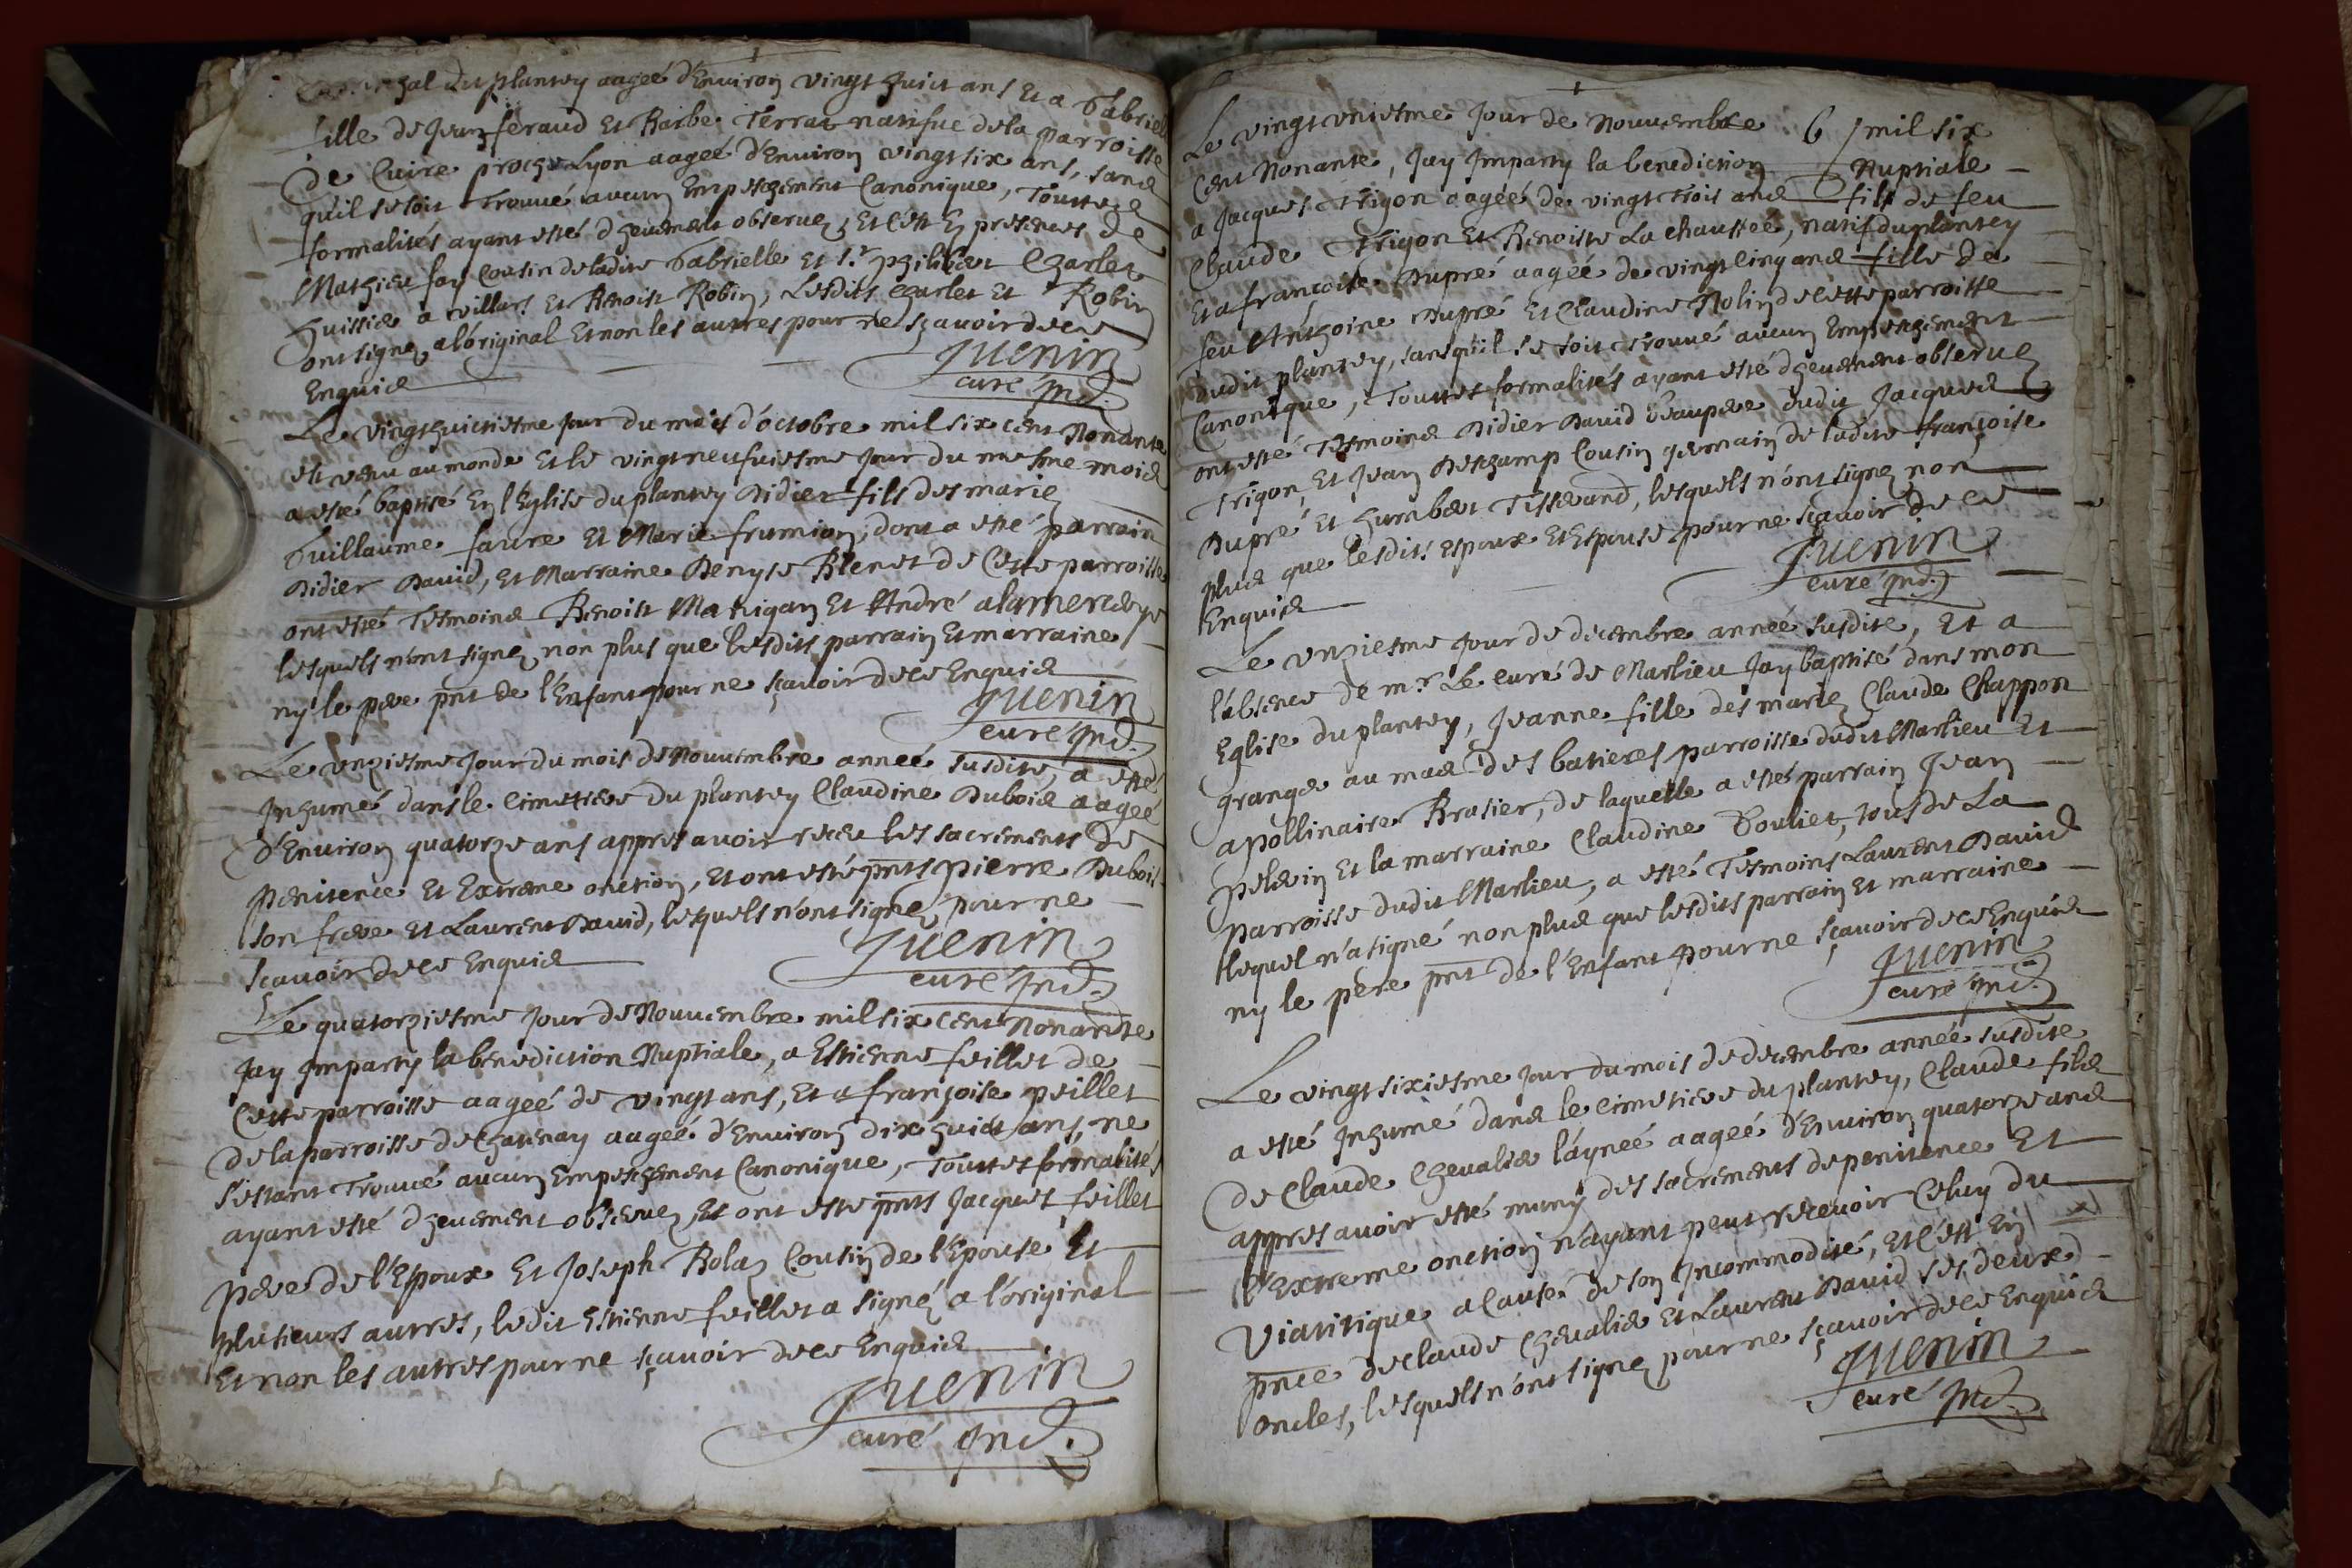 gal du plantey aageé d'Environ vingt huict ans Et a Gabriel
fille de Jean feraud Et Barbe Terrat natifue de la parroisse
De Cuire proche Lyon aageé d'Environ vingt six ans, sans
qu'il se soit Trouué aucun Empeschement Canonique, Touttes
formalités ayant esté dheuement obseruez, Et c'est En presences de
Mathieu fay Cousin de ladite Gabrielle et Sr philibert Charlet
huissier a villars Et Benoist Robin, Lesdits Charlet Et Robin
ont signez a l'original Et non les autres pour ne sçauoir de ce
Enquis
Juenin
curé Ind.
Le vingt huictiesme jour du mois d'octobre mil six cent Nonante
est venu au monde Et le vingt neufuiesme jour du mesme mois
a esté baptisé En l'Eglise du plantey Didier fils des mariez
Guillaume faure Et Marie frumion, dont a esté parrain
Didier David, Et Marraine Denyse Blenet de Cette parroisse
ont esté Tesmoins Benoist Matrigan Et André alamercerye
lesquels n'ont signez non plus que lesdits parrain Et marraine
ny le pere pnt de l'Enfant pour ne sçauoir de ce Enquis
Juenin
curé Ind.
Le unziesme jour du mois de Nouuembre anneé susdite, a esté
Inhumé dans le cimetiere du plantey Claudine Dubois aageé
d'Environ quatorze ans appres auoir receu les sacrements de
penitence Et Extreme onction, Et ont esté pnts pierre Dubois
son frere Et Laurent David, lesquels n'ont signez pour ne
sçauoir de ce Enquis
Juenin
curé Ind.
Le quatorziesme jour de Nouuembre mil six cent Nonante
Jay Imparty la benediction Nuptiale, a Estienne feillet de
Cette parroisse aageé de vingt ans, Et a françoise peillet
de la parroisse de Chatenay aageé d'Environ dix huict ans, ne
s'estant Trouué aucun Empeschement Canonique, Touttes formalités
ayant esté dheuement obseruez, Et ont esté pnts Jacques feillet
pere de l'Espoux Et Joseph Rolaz Cousin de l'Epouse Et
plusieurs autres, ledit Estienne feillet a signé a l'original
Et non les autres pour ne sçauoir de ce Enquis
Juenin
curé Ind.
Le vingt uniesme jour de Nouuembre 6 mil six
Cent Nonante, Jay Imparty la benediction Nuptiale
a Jacques Trigon aageé de vingt trois ans fils de feu
Claude Trigon Et Benoiste La chausseé, natif du plantey
Et a francoise Dupré aageé de vingt cinq ans fille de
feu Anthoine Dupré Et Claudine Nolin de cette parroisse
dudit plantey, sans qu'il se soit trouué aucun Empeschement
Canonique, Touttes formalités ayant esté dheuement obseruez
ont esté Tesmoins Didier David beaupere dudit Jacques
Trigon, Et Jean Deschamp Cousin germain de ladite françoise
Dupré Et humbert Tisserand, lesquels n'ont signez non
plus que lesdits espoux Et Espouse pour ne sçauoir de ce
Enquis
Juenin
curé Ind.
Le unziesme jour de decembre anneé susdite, Et a
l'absence de mr Le curé de Marlieu Jay baptisé dans mon
Eglise du plantey, Jeanne fille des mariez Claude Chappon
granger au mas des batieres parroisse dudit Marlieu Et
apollinaire Brasier, de laquelle a esté parrain Jean
pelerin Et la marraine Claudine Gouliet, tous de La
parroisse dudit Marlieu, a esté Tesmoins Laurent David
lequel n'a signé non plus que lesdits parrain Et marraine
ny le pere pnt de l'Enfant pour ne sçauoir de ce Enquis
Juenin
curé Ind.
Le vingt sixiesme jour du mois de decembre anneé susdite
a esté Inhumé dans le cimetiere du plantey, Claude fils
de Claude Chevalier l'ayneé aageé d'Environ quatorze ans
appres auoir esté muny des sacrements de penitence Et
l'Extreme onction n'ayant peut recevoir Celuy du
Viatitique a Cause de son Incommodité, Et c'est En
pnce de Claude Chevalier Et Laurent David ses deux
oncles, lesquels n'ont signez pour ne sçauoir de ce Enquis
Juenin
curé Ind.